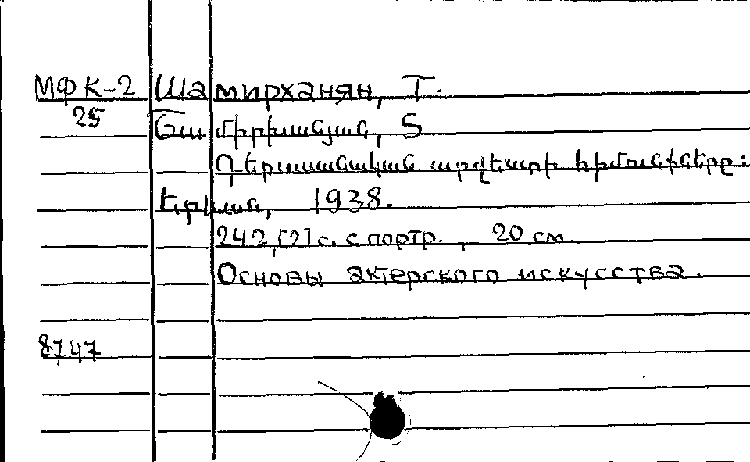 МФК-2 Шамирханян, Т.
25 Շամիրխանյան, Տ
Դերասանական արվեստի հիմունքները:
Երևան, 1938.
242,[2] с. с портр., 20 см.
Основы актерского искусства.
8747